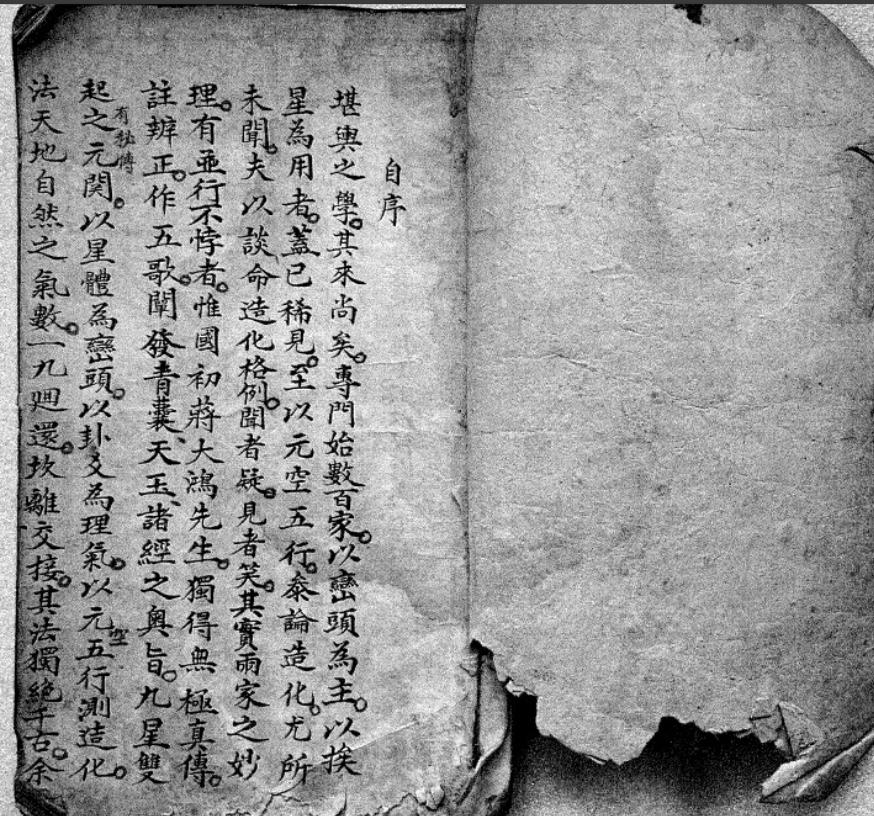 自序
堪輿之學其來尚矣專門始數百家以巒頭為主以挨
星為用者蓋已稀見至以元空五行泰論造化尤所
未聞夫以談命造化格例聞者疑見者笑其實兩家之妙
理有並行不悖者惟國初蔣大鴻先生獨得無極真傳
註辨正作五歌闡發青囊天玉諸經之奧旨九星雙
起之元関以星體為巒頭以卦爻為理氣以元空五行測造化
有秘傳
法天地自然之氣數一九廻還坎離交接其法獨絕千古余